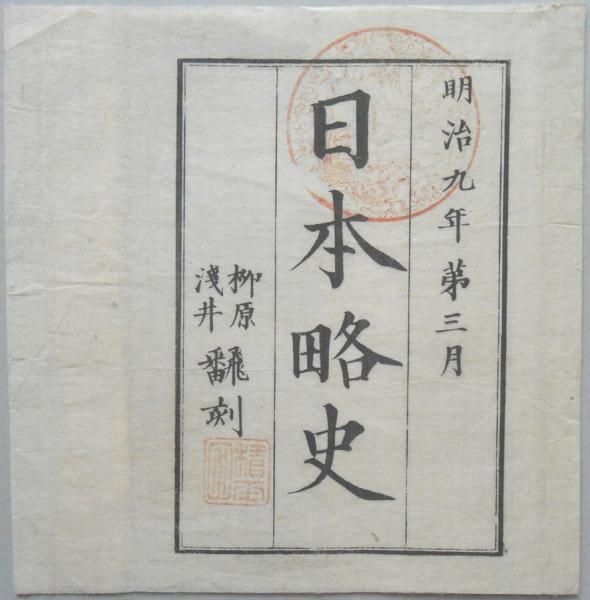 明治九年第三月
日本略史
柳原
淺井
飜刻